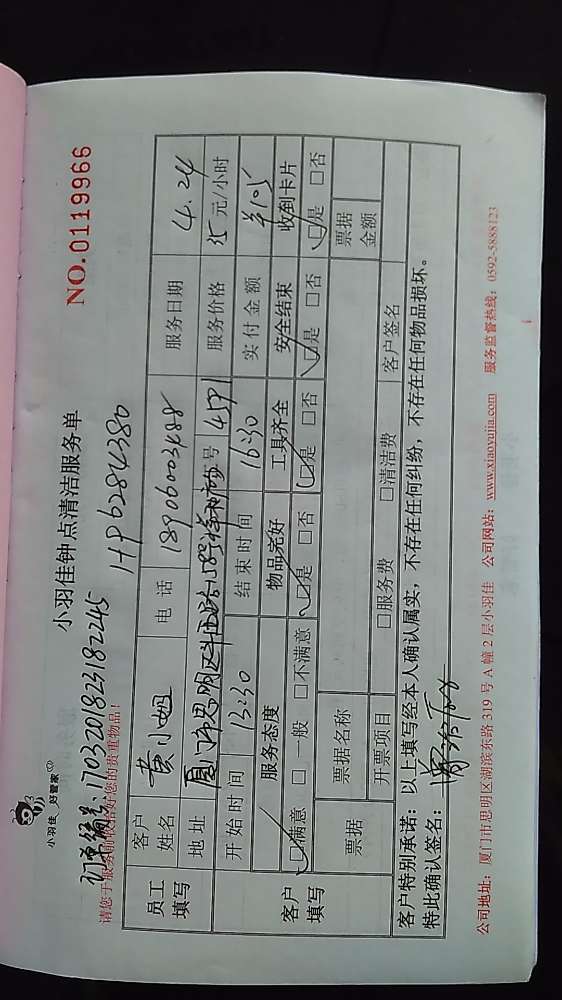 小羽佳 好管家
小羽佳钟点清洁服务单
NO.0119966
订单编号:1703201823182245
HP6284380
请您于服务前收拾好您的贵重物品!
员工填写
客户姓名 黄小姐 电话 18906003488 服务日期 4.24
地址 厦门市思明区 号 4591 服务价格 35 元/小时
开始时间 13:30 结束时间 16:30 实付金额 ¥105
客户填写
服务态度 物品完好 工具齐全 安全结束 收到卡片
☑满意 □一般 □不满意 ☑是 □否 ☑是 □否 ☑是 □否 ☑是 □否
票据 票据名称 票据金额
开票项目 □服务费 □清洁费 客户签名
客户特别承诺:以上填写经本人确认属实,不存在任何纠纷,不存在任何物品损坏。
特此确认签名:
公司地址:厦门市思明区湖滨东路 319 号 A 幢 2 层小羽佳 公司网站:www.xiaoyujia.com 服务监督热线:0592-5888123